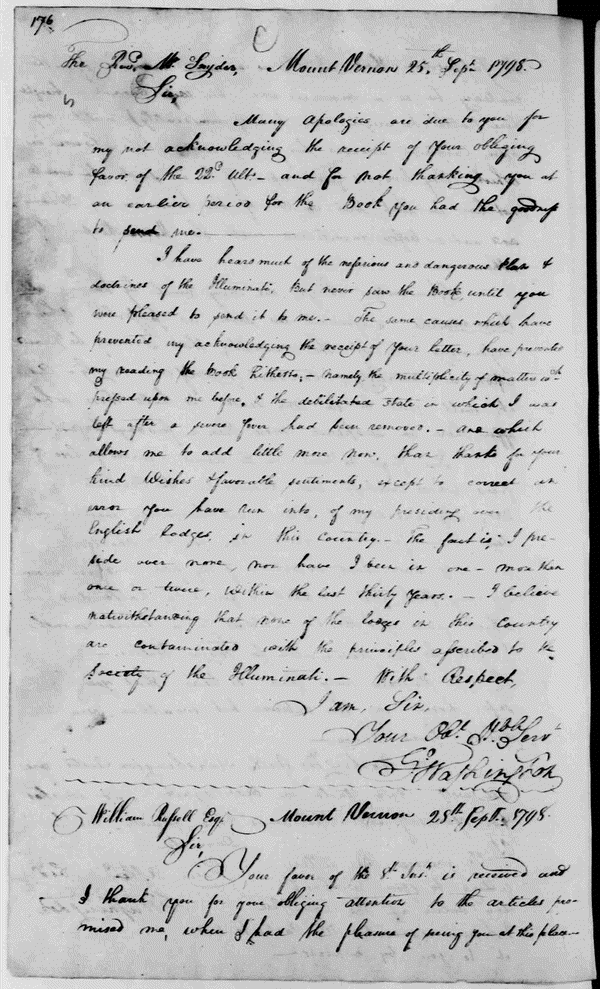 176
The Revd. Mr. Snyder, Mount Vernon 25th. Sept. 1798.
Sir,
Many Apologies are due to you for
my not acknowledging the receipt of Your obliging
favor of the 22d Ult— and for not thanking you at
an earlier period for the Book you had the goodness
to send me.
I have heard much of the nefarious and dangerous Plan &
doctrines of the Illuminati, But never saw the Book until you
were pleased to send it to me.— The same causes which have
prevented my acknowledging the receipt of Your letter, have prevented
my reading the Book hitherto;— namely the multiplicity of matters wch.
pressed upon me before, & the debilitated State in which I was
left after a severe fever had been removed.— and which
allows me to add little more now, than thanks for your
kind Wishes & favorable sentiments, except to correct an
error you have run into, of my presiding over the
English Lodges in this Country.— The fact is, I pre-
side over none, nor have I been in one— more than
once or twice, within the last thirty Years.— I believe
notwithstanding that none of the lodges in this Country
are contaminated with the principles ascribed to the
Society of the Illuminati.— With Respect,
I am, Sir,
Your Obt. Hble Servt
Go. Washington
William Russell Esqr. Mount Vernon 28th Sept. 1798.
Sir,
Your favor of the 8th Inst. is received and
I thank you for your obliging attention to the articles pro-
mised me, when I had the pleasure of seeing you at this place—